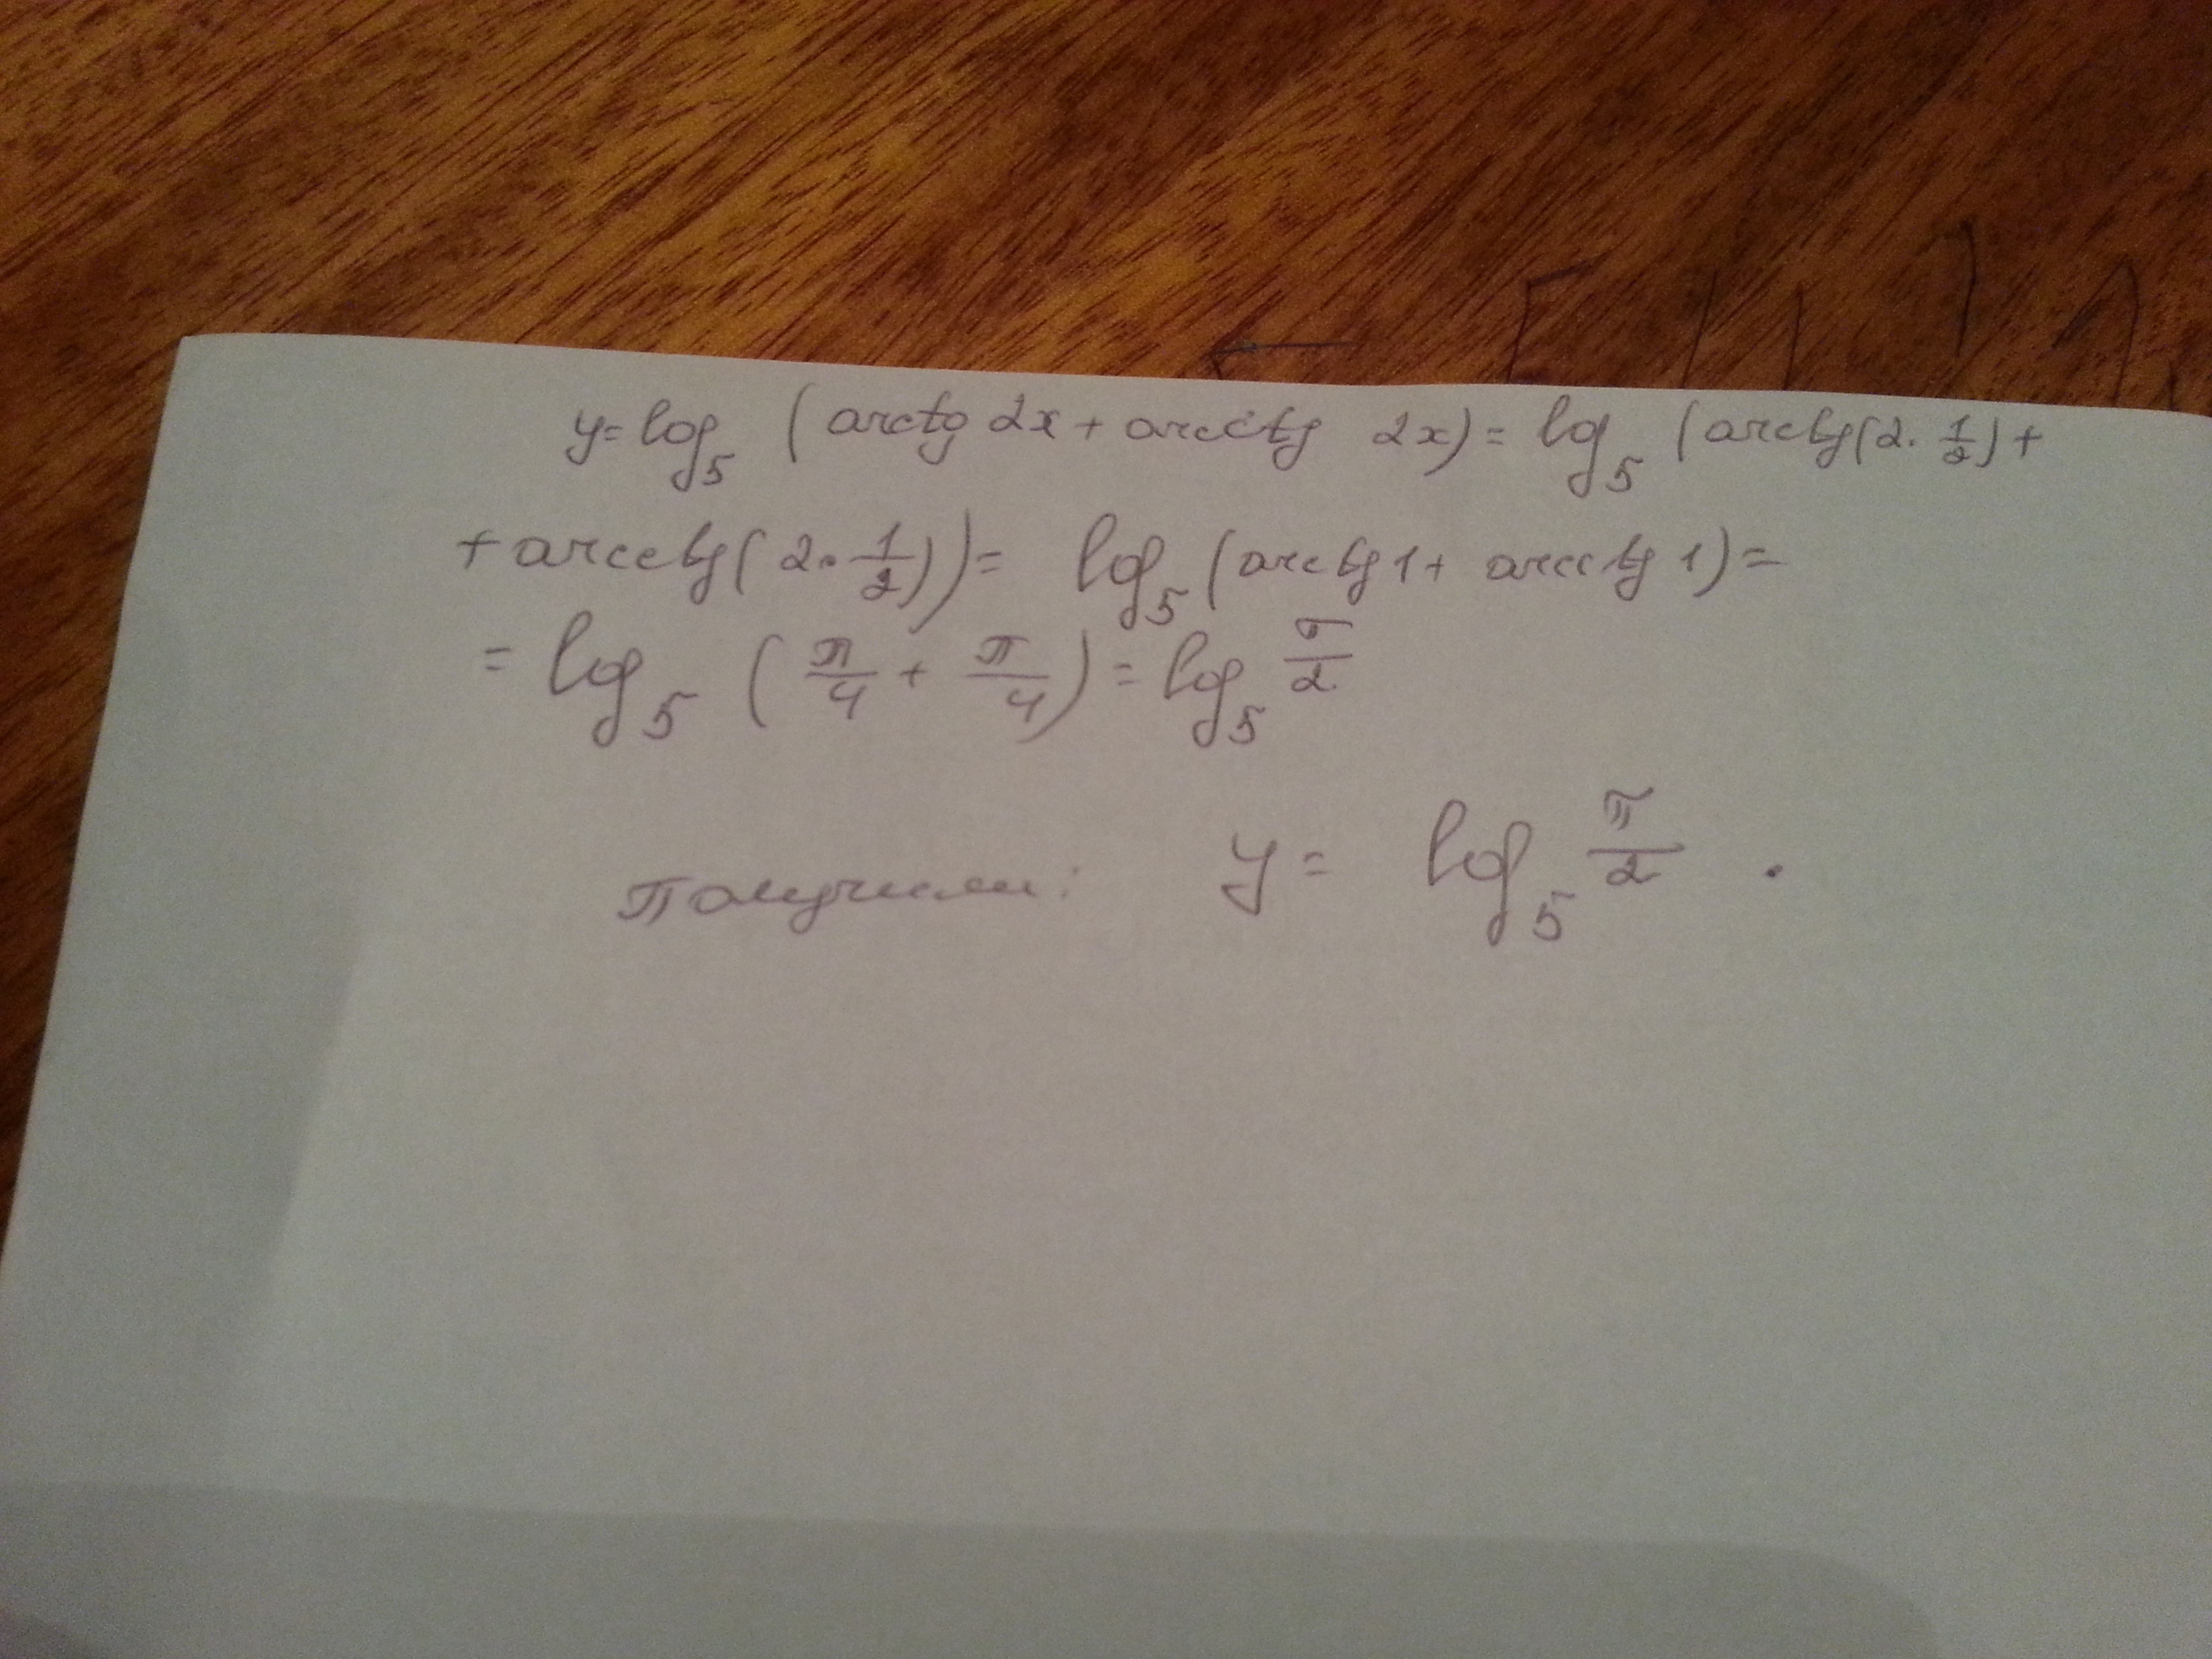 y = log₅ (arctg 2x + arcctg 2x) = log₅ (arctg(2·1/2) +
+ arcctg(2·1/2)) = log₅ (arctg 1 + arcctg 1) =
= log₅ (π/4 + π/4) = log₅ π/2
Получили: y = log₅ π/2.